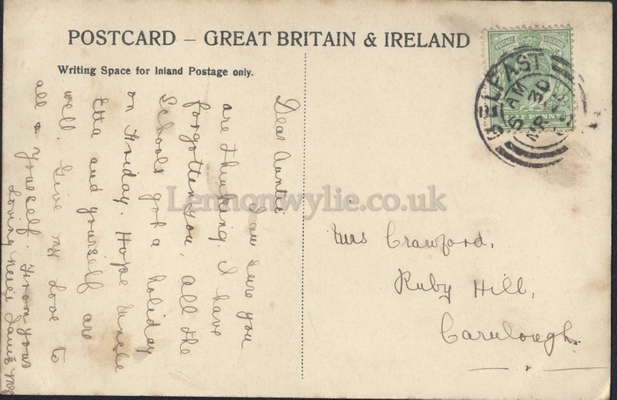 POSTCARD – GREAT BRITAIN & IRELAND
Writing Space for Inland Postage only.
Dear Auntie
I am sure you
are thinking I have
forgotten you, all the
Schools got a holiday
on Friday. Hope Uncle
Etta and yourself are
well. Give my love to
all & yourself. From your
loving niece
Mrs Crawford,
Ruby Hill,
Carulough.
BELFAST
5 AM
MR 30
Lennonwylie.co.uk